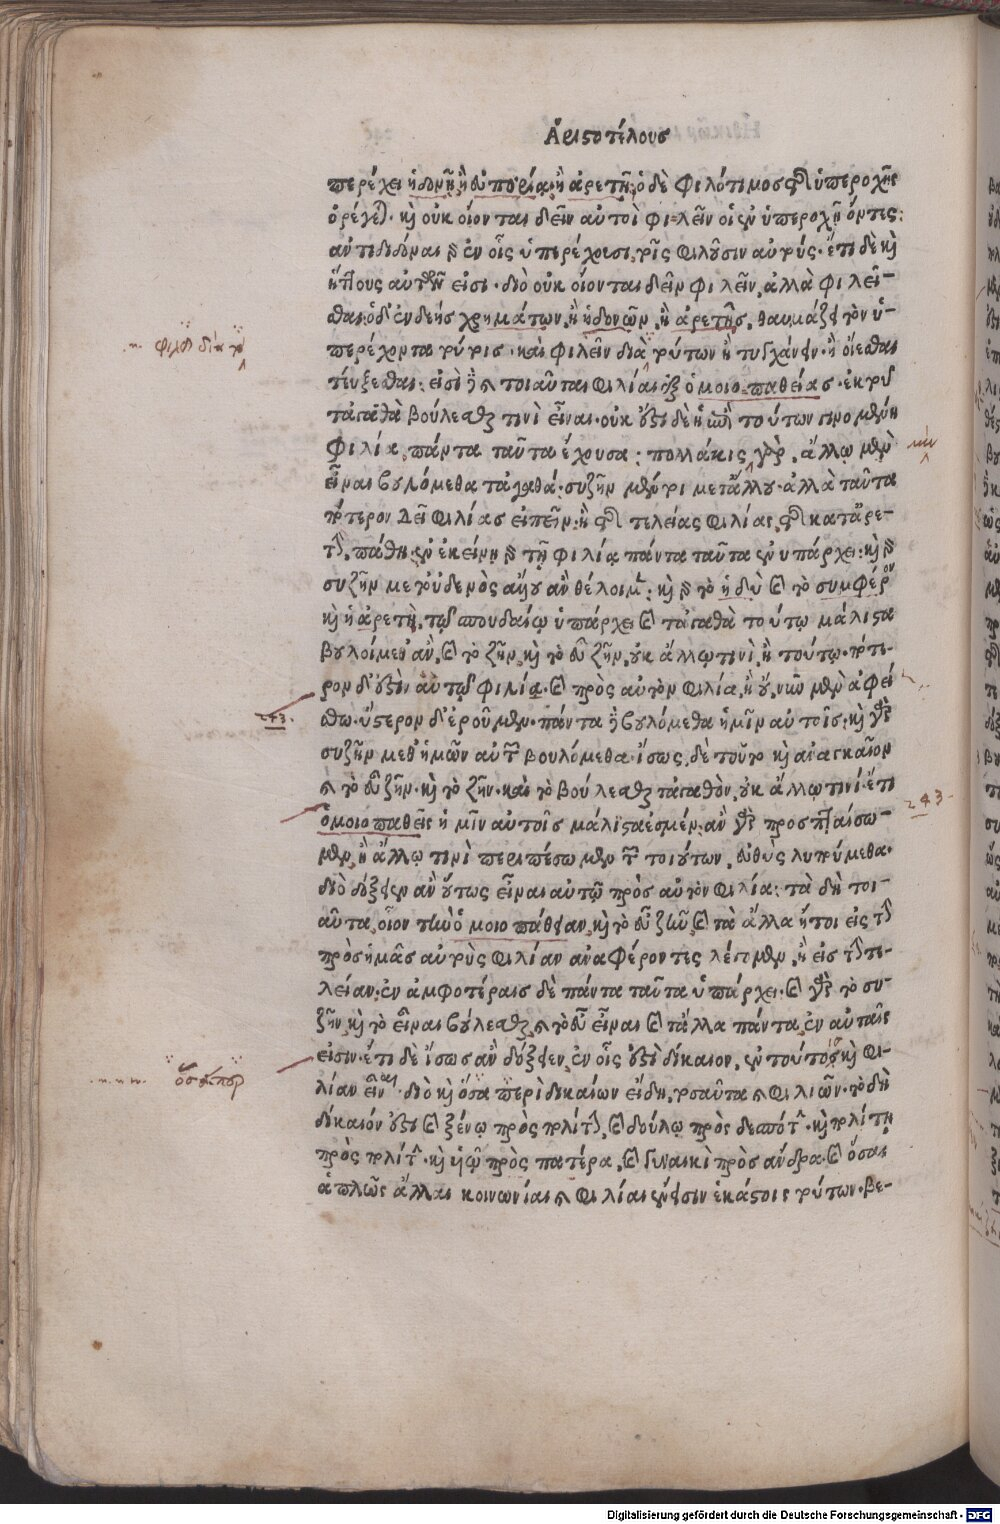 Ἀριστοτέλους
περέχει ἡδονῇ, ἢ εὐπορίᾳ, ἢ ἀρετῇ, ὁ δὲ φιλότιμος τῆς ὑπεροχῆς
ὀρέγεται. καὶ οὐκ οἴονται δεῖν αὐτοὶ φιλεῖν οἱ ἐν ὑπεροχῇ ὄντες.
ἀντιδιδόναι γὰρ ἐν οἷς ὑπερέχουσι, τοῖς φιλοῦσιν αὐτούς. ἔτι δὲ καὶ
ἥττους αὐτῶν εἰσι. διὸ οὐκ οἴονται δεῖν φιλεῖν, ἀλλὰ φιλεῖ-
σθαι. ὁ δ' ἐνδεὴς χρημάτων, ἢ ἡδονῶν, ἢ ἀρετῆς, θαυμάζει τὸν ὑ-
περέχοντα τούτοις. καὶ φιλεῖν διὰ τούτων ἢ τυγχάνειν, ἢ οἴεσθαι
τεύξεσθαι. εἰσὶ δὲ αἱ τοιαῦται φιλίαι ἐξ ὁμοιοπαθείας. ἐκ τοῦ
τἀγαθὰ βούλεσθαί τινι εἶναι. οὐκ ἔστι δὲ ἡ ἐπὶ τούτων γινομένη
φιλία, πάντα ταῦτα ἔχουσα. πολλάκις γὰρ, ἄλλῳ μὲν
εἶναι βουλόμεθα τἀγαθά. συζῆν μέντοι μετ' ἄλλου. ἀλλὰ ταῦτα
πότερον δεῖ φιλίας εἰπεῖν, ἢ τῆς τελείας φιλίας τῆς κατ' ἀρε-
τὴν, πάθη, ἐν ἐκείνῃ γὰρ τῇ φιλίᾳ πάντα ταῦτα ἐνυπάρχει. καὶ γὰρ
συζῆν μετ' οὐδενὸς ἄλλου ἂν θέλοιμεν. καὶ γὰρ τὸ ἡδὺ καὶ τὸ συμφέρον
καὶ ἡ ἀρετὴ, τῷ σπουδαίῳ ὑπάρχει καὶ τἀγαθὰ τούτῳ μάλιστα
βουλοίμεθ' ἂν, καὶ τὸ ζῆν, καὶ τὸ εὖ ζῆν, οὐκ ἄλλῳ τινὶ, ἢ τούτῳ. πότε-
ρον δ' ἔστιν αὑτῷ φιλία, καὶ πρὸς αὑτὸν φιλία, ἢ οὒ, νῦν μὲν ἀφεί-
σθω. ὕστερον δ' ἐροῦμεν. πάντα δὲ βουλόμεθα ἡμῖν αὐτοῖς. καὶ γὰρ
συζῆν μεθ' ἡμῶν αὐτῶν βουλόμεθα. ἴσως δὲ τοῦτο καὶ ἀναγκαῖον
καὶ τὸ εὖ ζῆν. καὶ τὸ ζῆν. καὶ τὸ βούλεσθαι τἀγαθὸν, οὐκ ἄλλῳ τινί. ἔτι
ὁμοιοπαθεῖς ἡμῖν αὐτοῖς μάλιστα ἐσμέν. ἂν γὰρ προσπταίσω-
μεν, ἢ ἄλλῳ τινὶ περιπέσωμεν τῶν τοιούτων, εὐθὺς λυπούμεθα.
διὸ δόξειεν ἂν οὕτως εἶναι αὐτῷ πρὸς αὑτὸν φιλία. τὰ δὴ τοι-
αῦτα, οἷον τὴν ὁμοιοπάθειαν, καὶ τὸ εὖ ζῆν, καὶ τὰ ἄλλα ἤτοι εἰς τὴν
πρὸς ἡμᾶς αὐτοὺς φιλίαν ἀναφέροντες λέγομεν, ἢ εἰς τὴν τε-
λείαν. ἐν ἀμφοτέραις δὲ πάντα ταῦτα ὑπάρχει. καὶ γὰρ τὸ συ-
ζῆν, καὶ τὸ εἶναι βούλεσθαι, καὶ τὸ εὖ εἶναι καὶ τἄλλα πάντα, ἐν αὐταῖς
εἰσιν. ἔτι δὲ ἴσως ἂν δόξειεν, ἐν οἷς ἐστὶ δίκαιον, ἐν τούτοις καὶ φι-
λίαν εἶναι. διὸ καὶ ὅσα περὶ δικαίων εἴδη, τοσαῦτα καὶ φιλιῶν. τὸ δὴ
δίκαιόν ἐστι καὶ ξένῳ πρὸς πολίτην, καὶ δούλῳ πρὸς δεσπότην. καὶ πολίτῃ
πρὸς πολίτην. καὶ υἱῷ πρὸς πατέρα, καὶ γυναικὶ πρὸς ἄνδρα. καὶ ὅσαι
ἁπλῶς ἄλλαι κοινωνίαι καὶ φιλίαι ἔνεισιν ἑκάσταις τούτων. βε-
243.
243
Digitalisierung gefördert durch die Deutsche Forschungsgemeinschaft - DFG